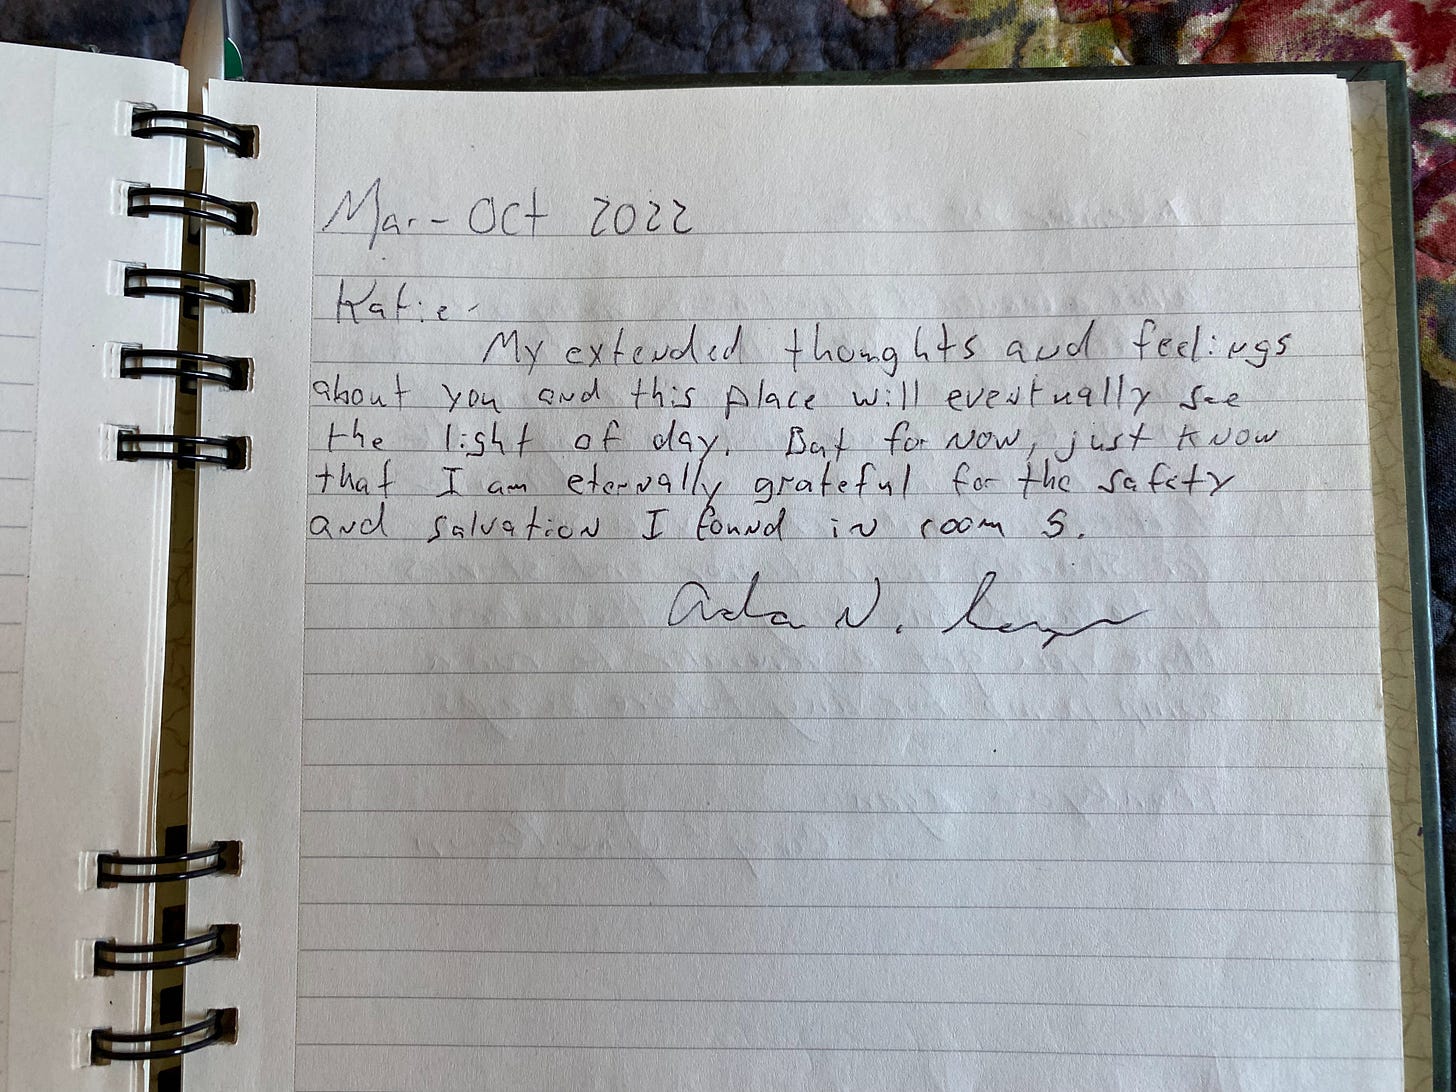 Mar - Oct 2022
Katie -
My extended thoughts and feelings
about you and this place will eventually see
the light of day. But for now, just know
that I am eternally grateful for the safety
and salvation I found in room 5.
N.